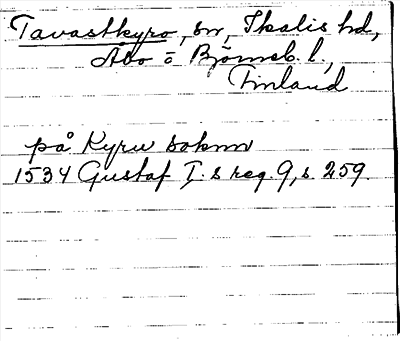 Tavastkyro, sn, Ikalis hd,
Åbo o Björneb. l.,
Finland
på Kyru soknn
1534 Gustaf I.s reg. 9, s. 259.